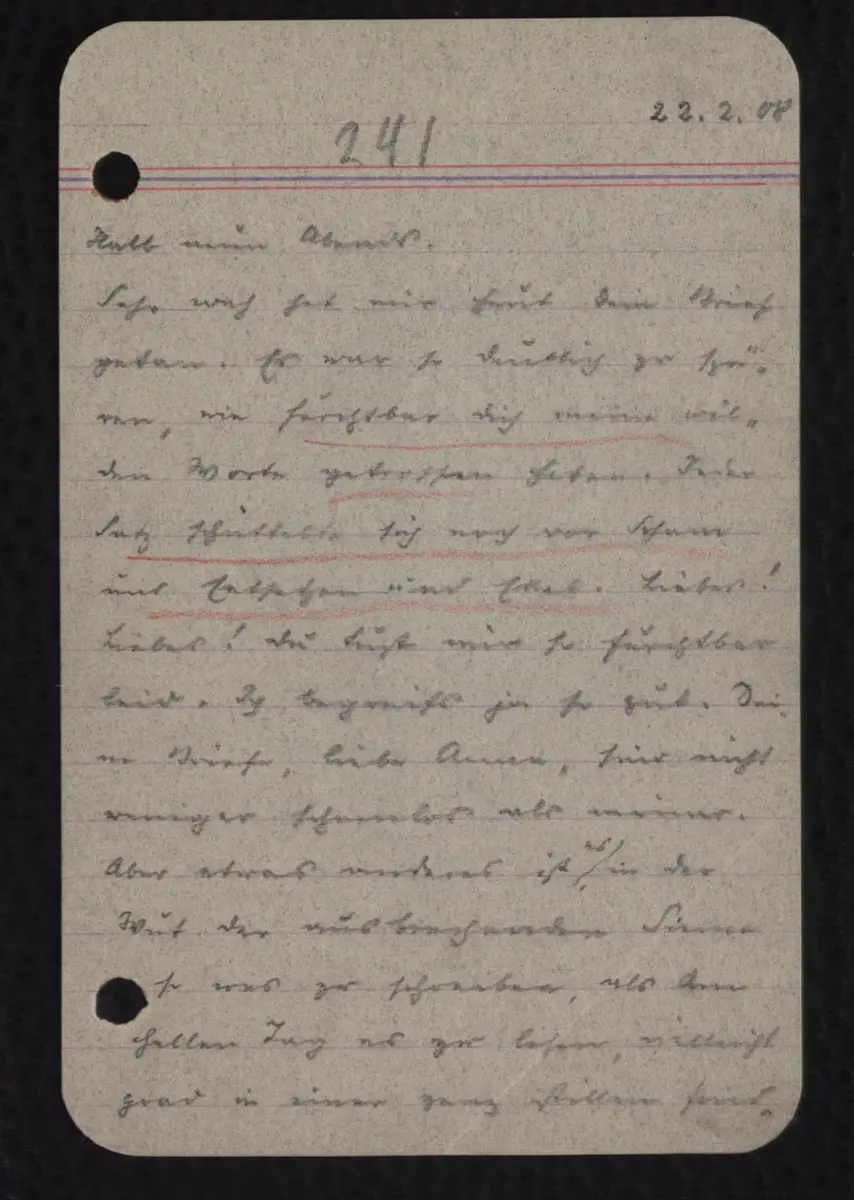 22.2.08
241
Halb neun Abends.
Sehr weh hat mir heut dein Brief
getan. Es war so deutlich zu spü-
ren, wie furchtbar dich meine wil-
den Worte getroffen haben. Jeder
Satz schüttelte sich noch vor Scham
und Entsetzen und Ekel. Liebes!
Liebes! Du tust mir so furchtbar
leid. Ich begreifs ja so gut. Dei-
ne Briefe, liebe Anna, sind nicht
weniger schamlos als meiner.
Aber etwas anderes ist es, in der
Wut der ausbrechenden Sinne
so was zu schreiben, als am
hellen Tag es zu lesen, vielleicht
grad in einer ganz stillen